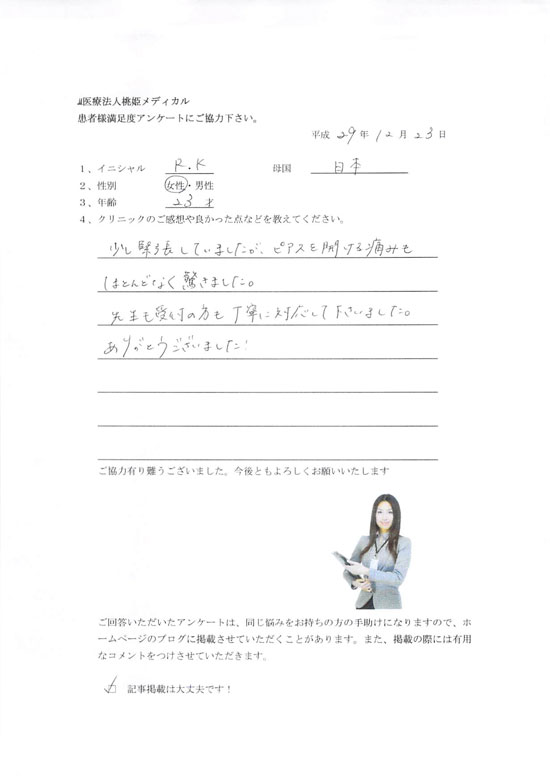 医療法人桃姫メディカル
患者様満足度アンケートにご協力下さい。
平成 29 年 12 月 23 日
1、イニシャル R.K 母国 日本
2、性別 女性・男性
3、年齢 23才
4、クリニックのご感想や良かった点などを教えてください。
少し緊張していましたが、ピアスを開ける痛みも
ほとんどなく驚きました。
先生も受付の方も丁寧に対応して下さいました。
ありがとうございました!
ご協力有り難うございました。今後ともよろしくお願いいたします
ご回答いただいたアンケートは、同じ悩みをお持ちの方の手助けになりますので、ホ
ームページのブログに掲載させていただくことがあります。また、掲載の際には有用
なコメントをつけさせていただきます。
記事掲載は大丈夫です!